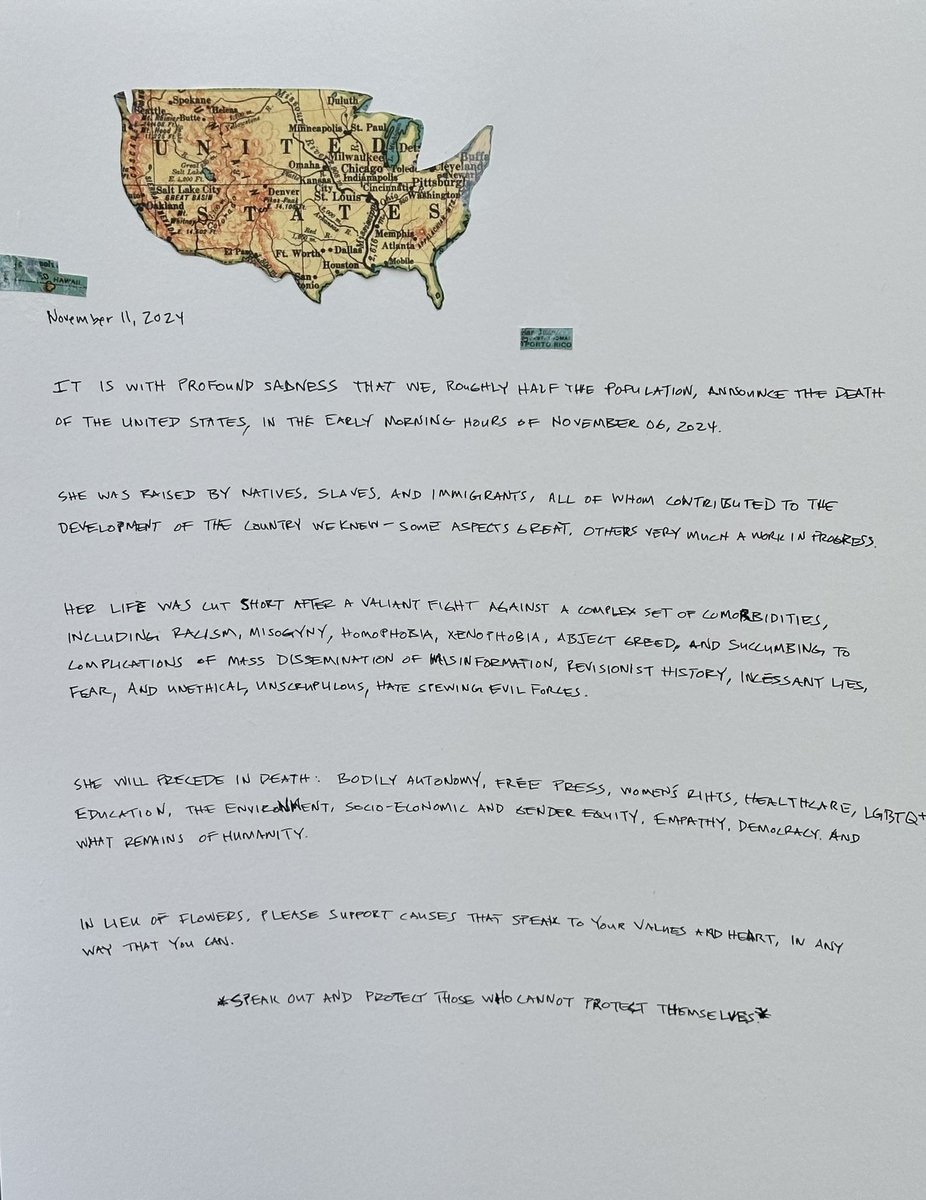 Spokane
Seattle
Helena
Butte
Duluth
Minneapolis
St. Paul
UNITED
Milwaukee
Chicago
Omaha
Indianapolis
Cincinnati
Cleveland
Pittsburg
Washington
Great
Salt Lake
E. 4,200 Ft.
Salt Lake City
GREAT BASIN
Oakland
Denver
Kansas
City
St. Louis
STATES
Memphis
Atlanta
El Paso
Ft. Worth
Dallas
Houston
Mobile
San
HAWAII
PORTO RICO
November 11, 2024
IT IS WITH PROFOUND SADNESS THAT WE, ROUGHLY HALF THE POPULATION, ANNOUNCE THE DEATH
OF THE UNITED STATES, IN THE EARLY MORNING HOURS OF NOVEMBER 06, 2024.
SHE WAS RAISED BY NATIVES, SLAVES, AND IMMIGRANTS, ALL OF WHOM CONTRIBUTED TO THE
DEVELOPMENT OF THE COUNTRY WE KNEW – SOME ASPECTS GREAT, OTHERS VERY MUCH A WORK IN PROGRESS.
HER LIFE WAS CUT SHORT AFTER A VALIANT FIGHT AGAINST A COMPLEX SET OF COMORBIDITIES,
INCLUDING RACISM, MISOGYNY, HOMOPHOBIA, XENOPHOBIA, ABJECT GREED, AND SUCCUMBING TO
COMPLICATIONS OF MASS DISSEMINATION OF MISINFORMATION, REVISIONIST HISTORY, INCESSANT LIES,
FEAR, AND UNETHICAL, UNSCRUPULOUS, HATE SPEWING EVIL FORCES.
SHE WILL PRECEDE IN DEATH: BODILY AUTONOMY, FREE PRESS, WOMEN'S RIHTS, HEALTHCARE, LGBTQ+
EDUCATION, THE ENVIRONMENT, SOCIO-ECONOMIC AND GENDER EQUITY, EMPATHY, DEMOCRACY. AND
WHAT REMAINS OF HUMANITY.
IN LIEU OF FLOWERS, PLEASE SUPPORT CAUSES THAT SPEAK TO YOUR VALUES AND HEART, IN ANY
WAY THAT YOU CAN.
*SPEAK OUT AND PROTECT THOSE WHO CANNOT PROTECT THEMSELVES.*